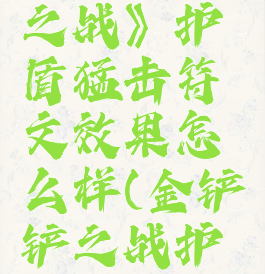 之战》护
盾猛击符
文效果怎
么样(金铲
铲之战护